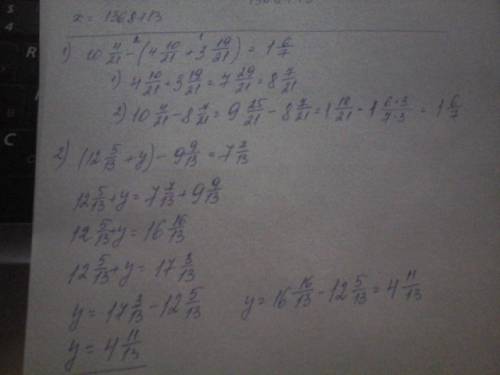 x = 1368113
1) 10 4/21 - (4 10/21 + 3 19/21) = 1 6/7
1) 4 10/21 + 3 19/21 = 7 29/21 = 8 8/21
2) 10 4/21 - 8 8/21 = 9 25/21 - 8 8/21 = 1 18/21 = 1 6·3/7·3 = 1 6/7
2) (12 5/13 + y) - 9 9/13 = 7 7/13
12 5/13 + y = 7 7/13 + 9 9/13
12 5/13 + y = 16 16/13
12 5/13 + y = 17 3/13
y = 17 3/13 - 12 5/13
y = 16 16/13 - 12 5/13 = 4 11/13
y = 4 11/13